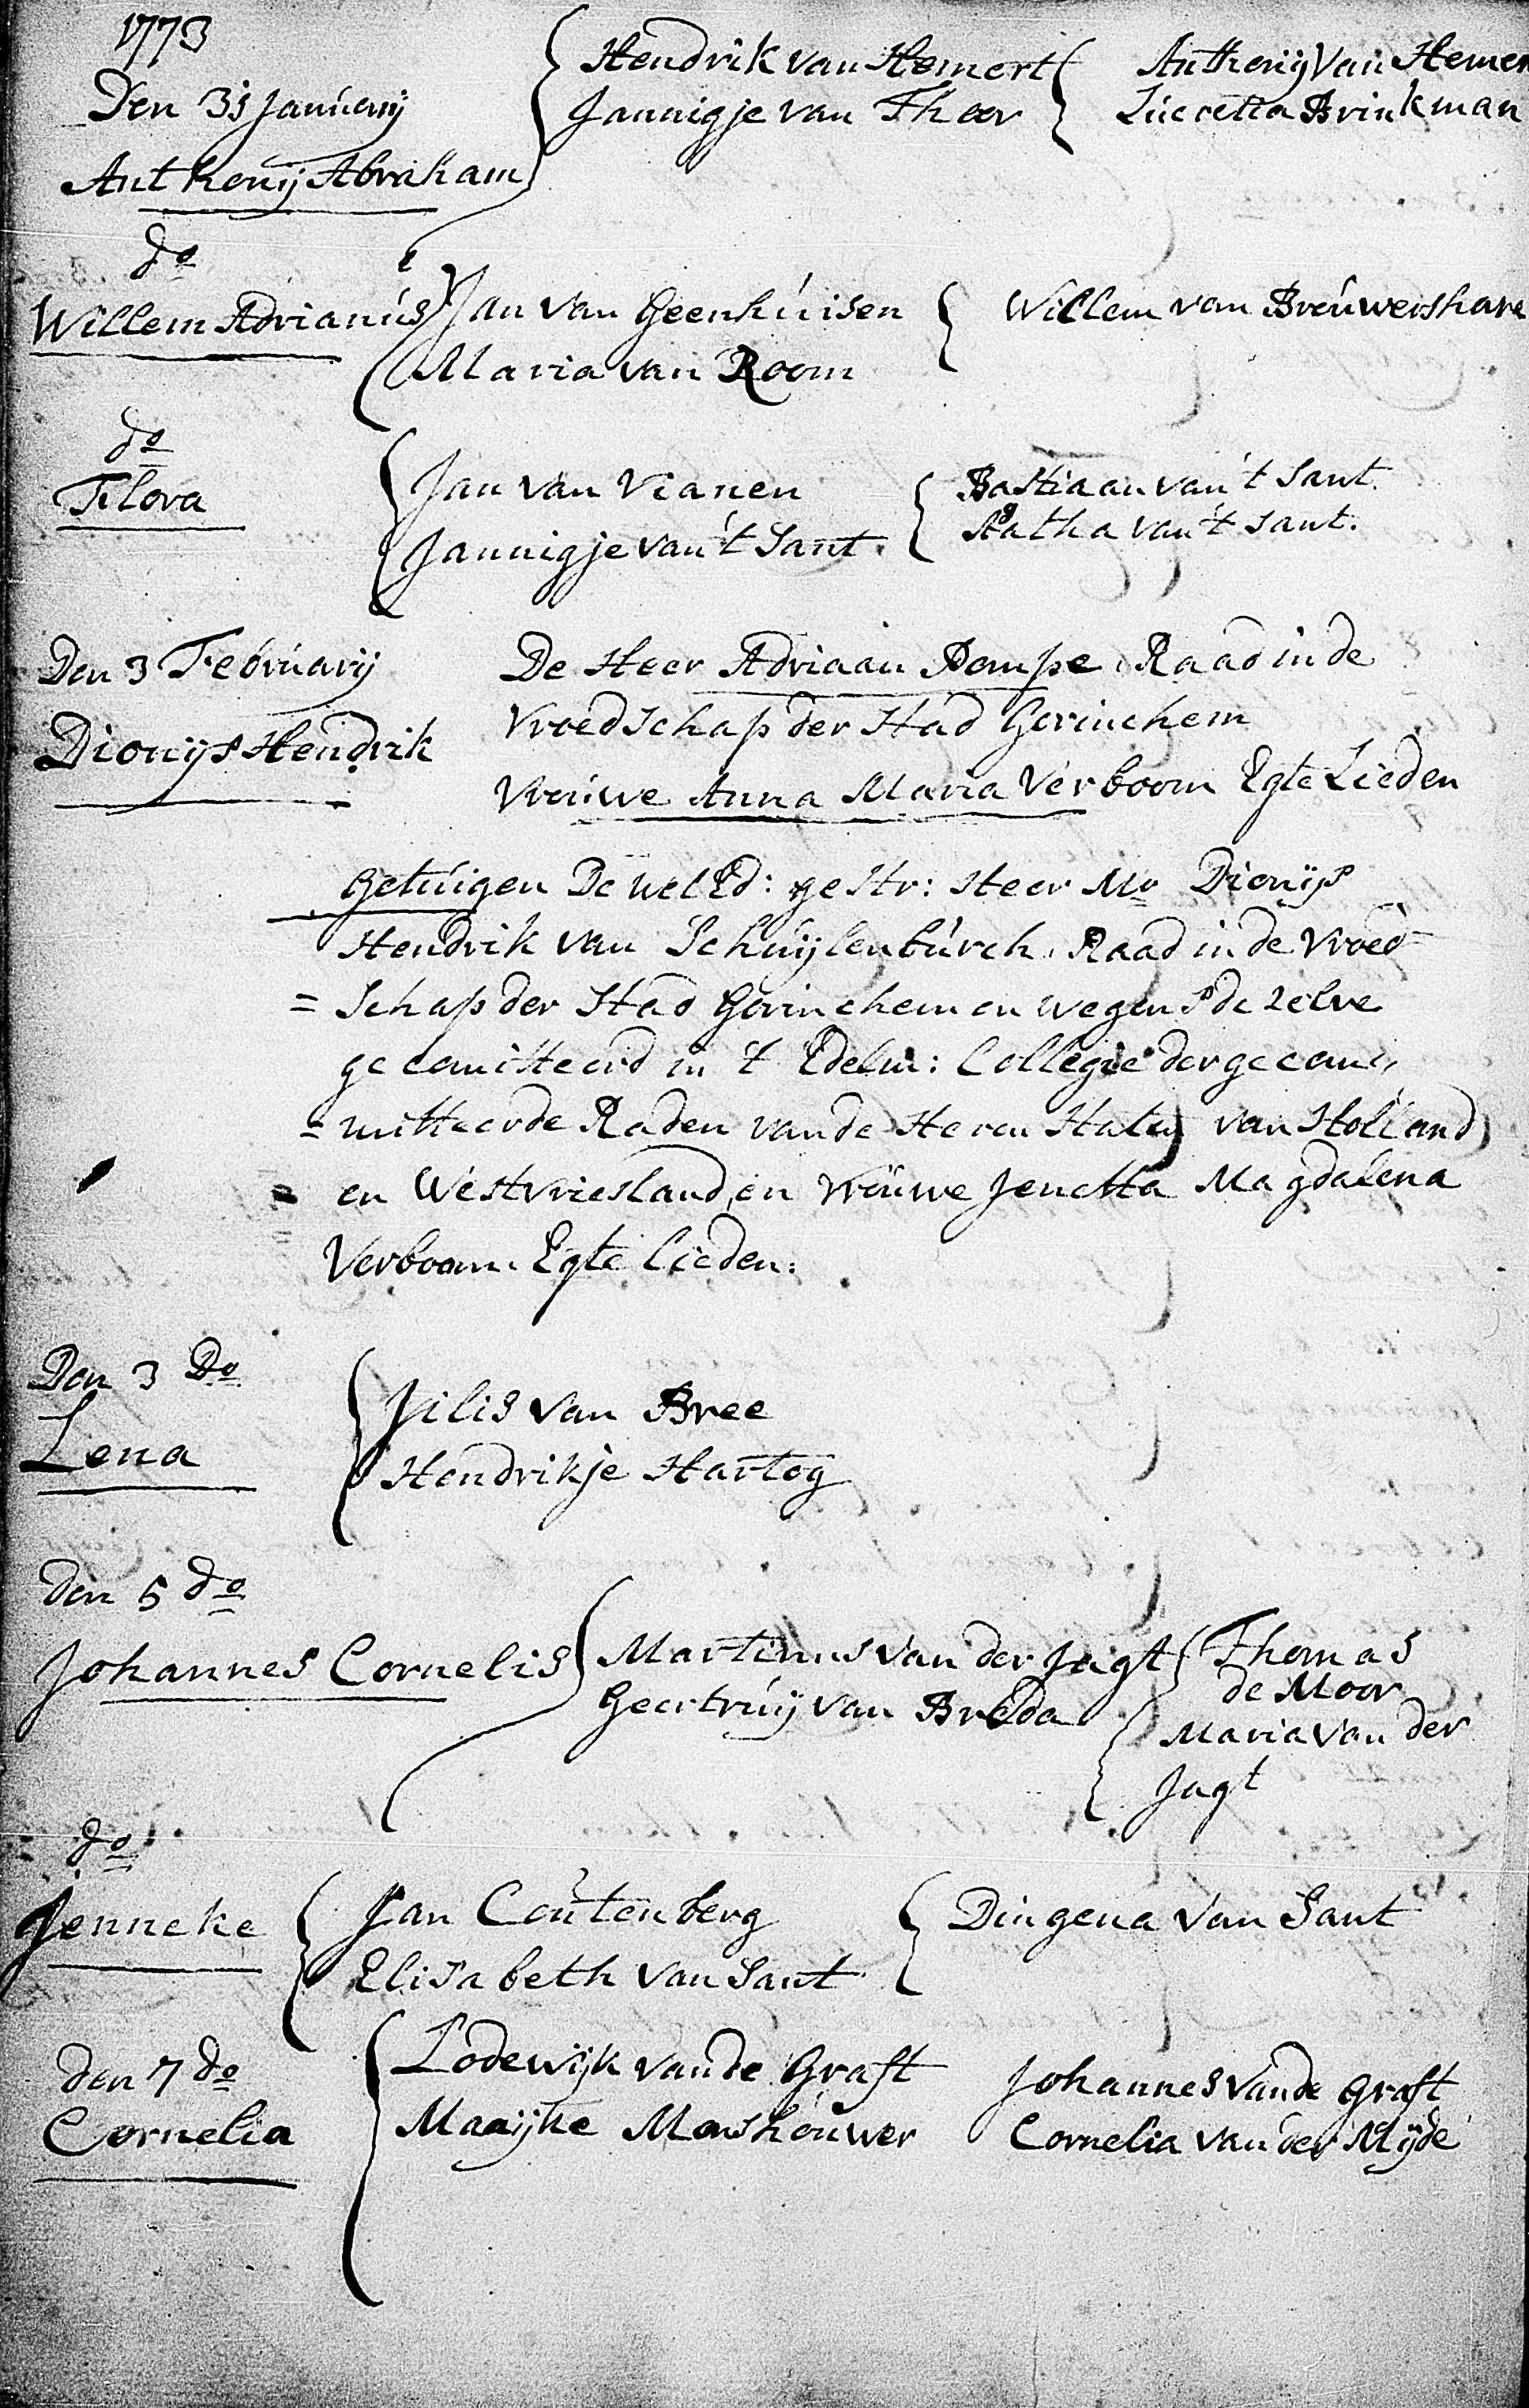 1773
Den 31 Januarij
Anthonij Abraham
Hendrik van Hemert
Jannigje van Thoor
Anthonij van Hemer
Lucretia Brinkman
do
Willem Adrianus
Jan van Geenhuisen
Maria van Room
Willem van Breuwershave
do
Flora
Jan van Vianen
Jannigje van 't Sant
Bastiaan van 't Sant
Agatha van 't Sant.
Den 3 Februarij
Dionijs Hendrik
De Heer Adriaan Pompe Raad in de
Vroedschap der Stad Gorinchem
Vrouwe Anna Maria Verboom Egte Lieden
Getuigen De WelEd: gestr: Heer Mr Dionijs
Hendrik van Schuijlenburch, Raad in de Vroed
= schap der Stad Gorinchem en wegens de zelve
gecomitteerd in 't Edelm: Collegie der gecom
= mitteerde Raden van de Heren Staten van Holland
= en Westvriesland, en Vrouwe Jenetta Magdalena
Verboom. Egte Lieden:
Den 3 Do
Lena
Jilis van Bree
Hendrikje Hartog
den 5 do
Johannes Cornelis
Martinus van der Jagt
Geertruij van Breda
Thomas
de Moor
Maria van der
Jagt
do
Jenneke
Jan Coutenberg
Elisabeth van Sant
Dingena van Sant
den 7 do
Cornelia
Lodewijk van de Graft
Maaijke Moushouwer
Johannes van de Graft
Cornelia van der Mijde